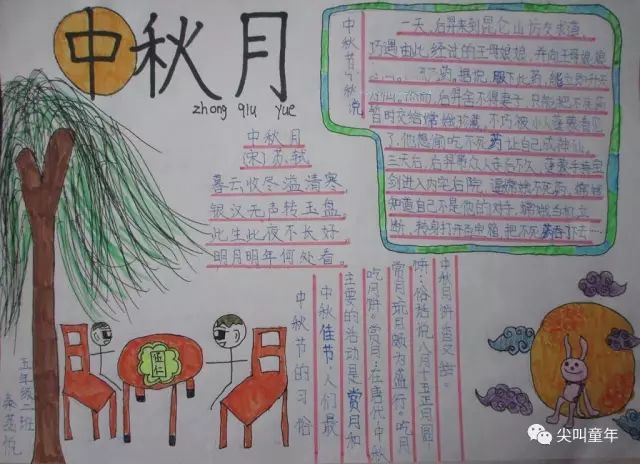 中秋月
zhong qiu yue
中秋月
(宋)苏轼
暮云收尽溢清寒,
银汉无声转玉盘。
此生此夜不长好,
明月明年何处看。
中秋节传说
一天,后羿来到昆仑山访友求道,
巧遇由此经过的王母娘娘,并向王母娘娘
药。据说,服下此药,能立即升天
成仙。然而,后羿舍不得妻子,只能把不死药
暂时交给嫦娥珍藏。不巧被小人蓬蒙看见
了,他想偷吃不死药让自己成神仙。
三天后,后羿
剑进入内宅后院,逼嫦娥
知道自己不是他的对手,嫦娥当机立
断,转身打开百宝箱,把不死药吞了下去……
中秋节的习俗
中秋佳节,人们最
主要的活动是赏月和
吃月饼。赏月:在唐代,中秋
赏月、玩月颇为盛行。吃月
饼:俗话说八月十五正月圆
中秋月饼香又甜。
伍仁
五年级二班
尖叫童年